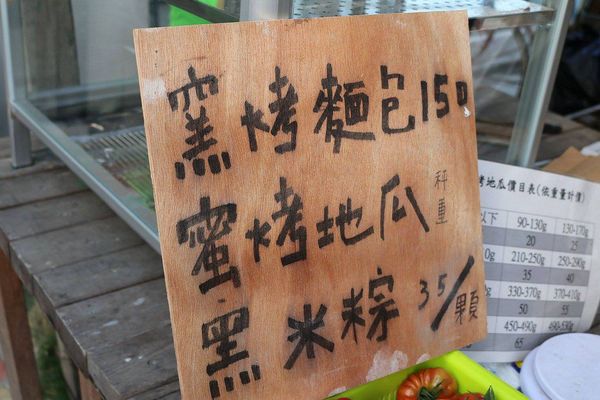 窯烤麵包150
蜜烤地瓜 秤重
黑米粽 35/顆
烤地瓜價目表(依重量計價)
以下 90-130g 130-170g
20 25
0g 210-250g 250-290g
35 40
0g 330-370g 370-410g
50 55
450-490g 490-530g
65